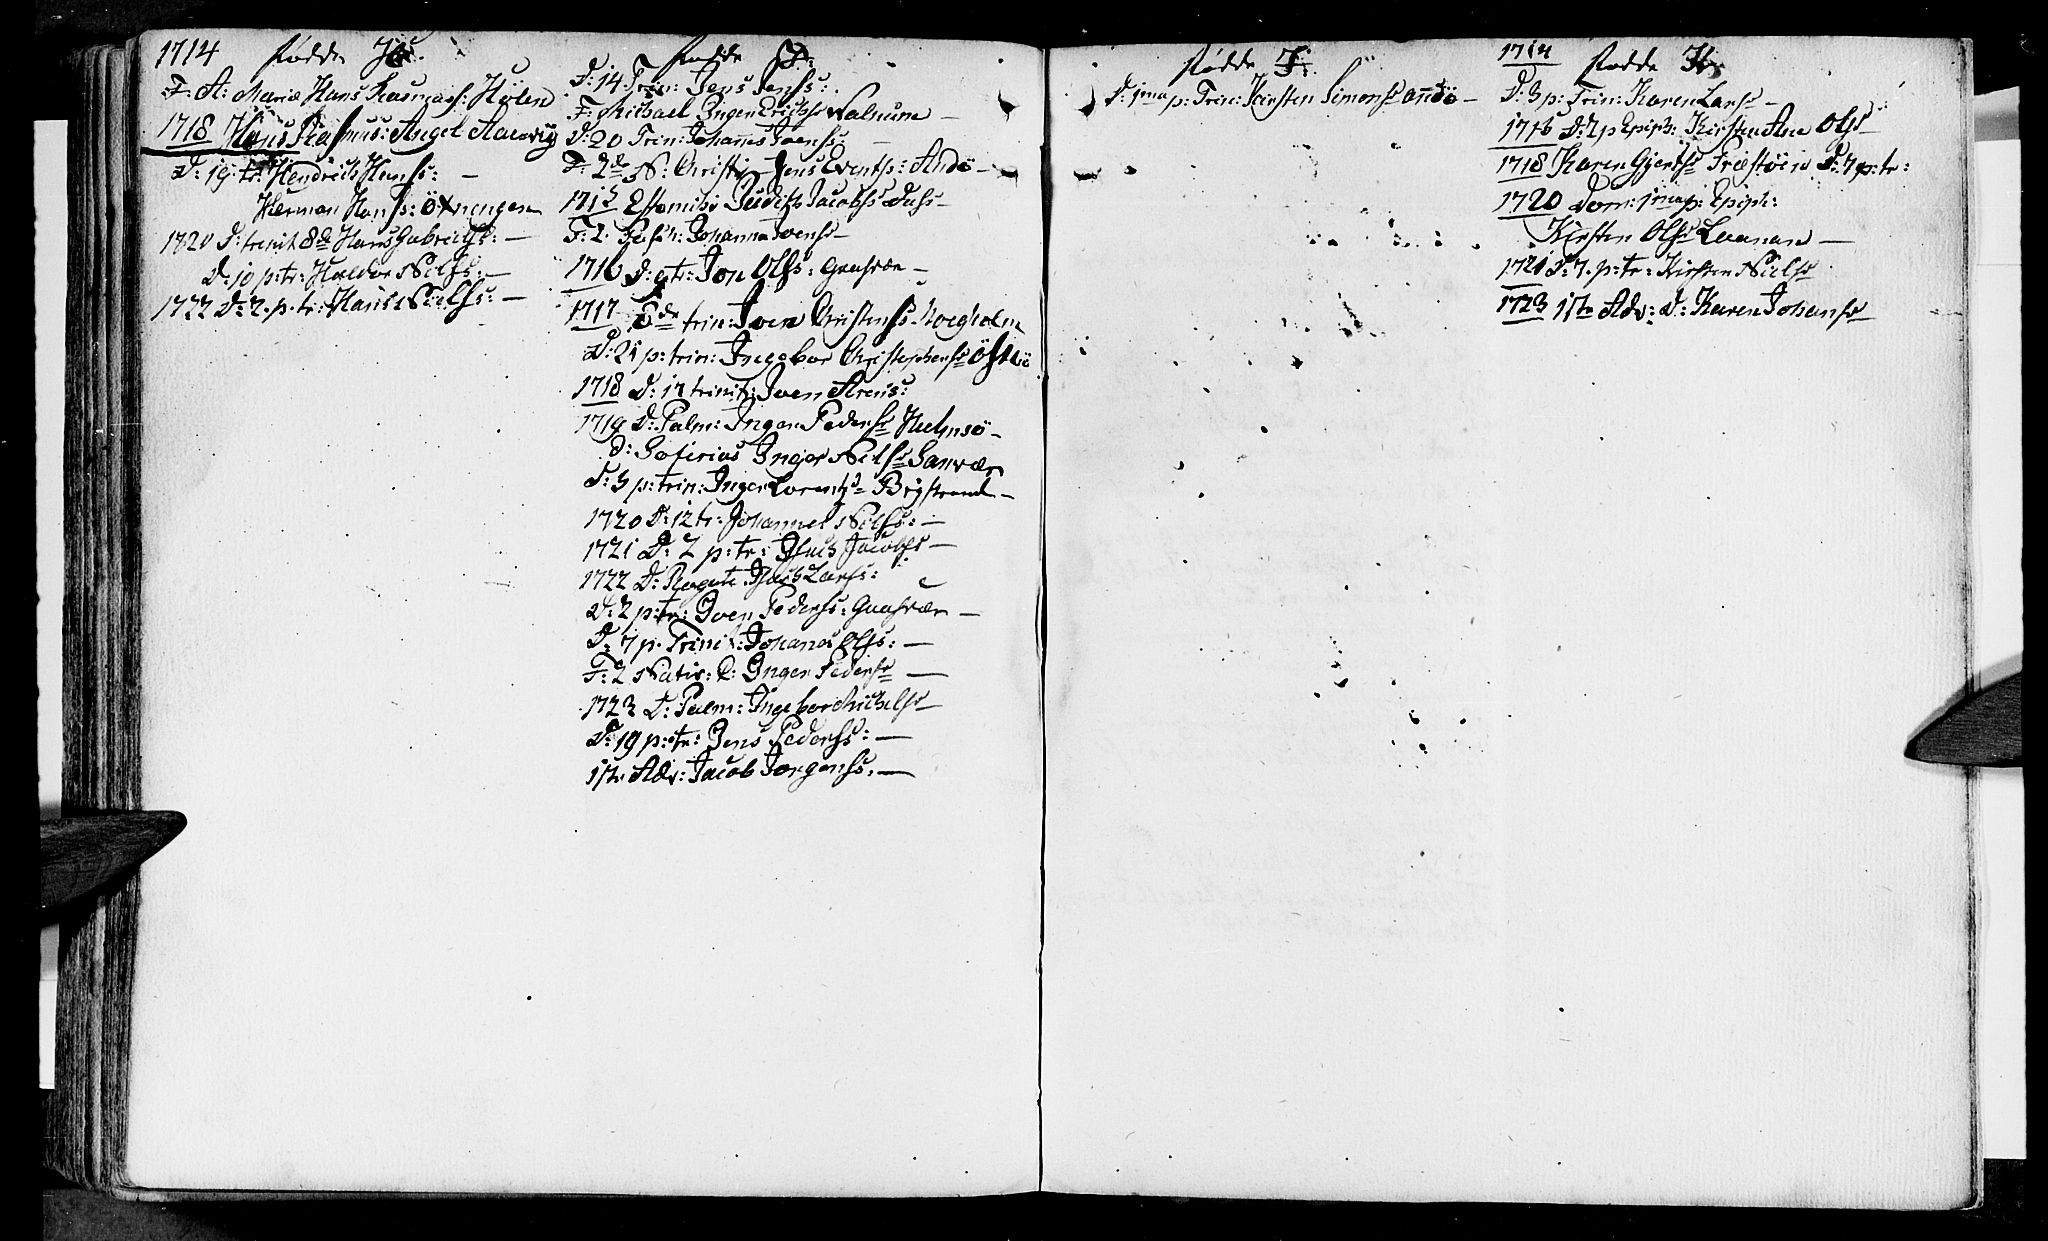 1714 Fødde H.
F. A: Mariæ Hans Rasmuss: Hølen
1718 Hans Rasmus: Angel Aasvig
D: 19 tr: Hendrich Hanss: —
Herman Hanss: Öxningen
1720 D: trinit 8de Hans Gabrielss: —
D. 10 p: tr: Haldor Nilss: —
1722 D: 2. p. tr: Hans Nielss: —
Fødde J.
D: 14 Trin: Jens Jenss:
F. Michael Inger Erichsd Valnum —
D: 20 Trin: Johannes Ivenss —
F: 2de N: Christi — Jens Eventss: Andö —
1715 Estomihi Judith Jacobsd
F: 2. Pasch: Johanna Ivensd —
1716 D: 9 tr: Jon Olss: Gaasvær —
1717 5de trin: Iven Christenss Morgholm
D: 21 p: trin: Ingebor Christophersd
1718 D: 17 trinit: Iven Arens:
1719 D: Palm: Inger Pedersd Helmsö —
D: Sotirius Inger Nilsd Sanvær
D: 3 p: trin: Inger Lorentzd Bÿstrand —
1720 D: 12 tr: Johannes Nilss: —
1721 D: 2 p: tr: Isach Jacobss —
1722 D: Rogate Isach Larss:
D: 2 p: tr: Iven Pederss: Gaasvær —
D: 7 p. Trinit: Johanes Olss: —
F: 2 Nativ: D: Inger Pedersd —
1723 D: Palm: Ingebor Michelsd —
D: 19 p: tr: Jens Pederss: —
1te Adv: Jacob Jørgenss. —
Fødde
D: 1ma p: Trin: Kirsten Simonsd Andö —
1714 Fødde K
D: 3 p: Trin: Karen Larsd —
1716 D: 2 p Epiph: Kirsten Ane Olsd
1718 Karen Gjertsd Præstöen D: 7 p: tr:
1720 Dom: 1ma p: Epiph:
Kirsten Olsd Laanan —
1721 D: 7. p: tr: Kirsten Nielsd
1723 1te Adv: D: Karen Johansd